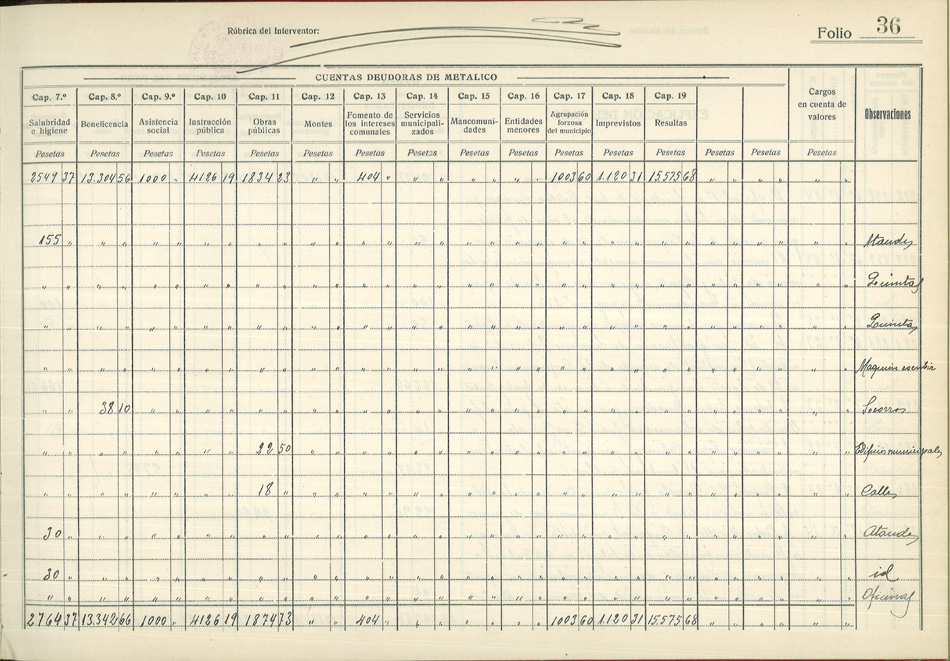 Rúbrica del Interventor:
Folio 36
CUENTAS DEUDORAS DE METALICO
Cap. 7.º Cap. 8.º Cap. 9.º Cap. 10 Cap. 11 Cap. 12 Cap. 13 Cap. 14 Cap. 15 Cap. 16 Cap. 17 Cap. 18 Cap. 19
Salubridad e higiene Beneficencia Asistencia social Instrucción pública Obras públicas Montes Fomento de los intereses comunales Servicios municipalizados Mancomunidades Entidades menores Agrupación forzosa del municipio Imprevistos Resultas Cargos en cuenta de valores Observaciones
Pesetas Pesetas Pesetas Pesetas Pesetas Pesetas Pesetas Pesetas Pesetas Pesetas Pesetas Pesetas Pesetas Pesetas Pesetas Pesetas
2549 37 13.304 56 1000 " 4126 19 1834 23 " " 404 " " " " " " " 1003 60 1.120 31 15.575 68 " " " " " "
155 " Ataudes
Quintas
Quintas
Maquina escribir
38 10 Socorros
22 50 Edificios municipales
18 " Calles
30 " Ataudes
30 " id
Oficinas
2764 37 13.342 66 1000 " 4126 19 1874 73 " " 404 " " " " " " " 1003 60 1.120 31 15.575 68 " " " " " "